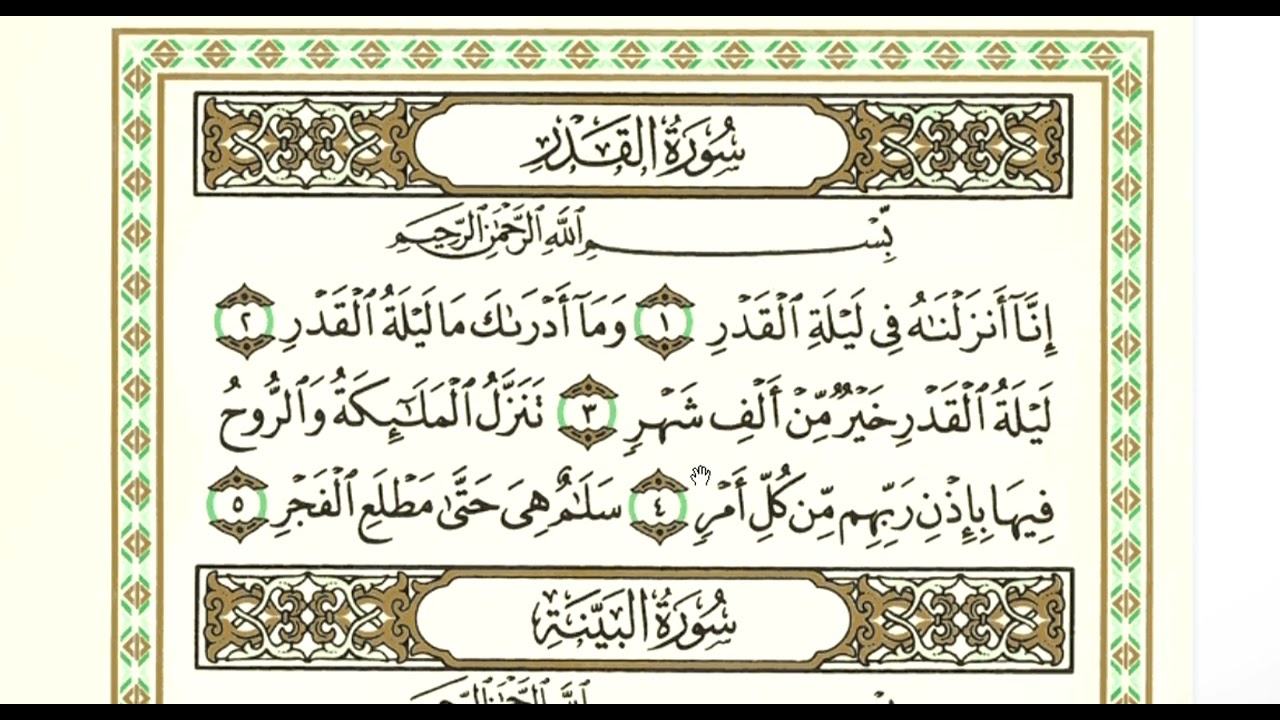 سُورَةُ القَدْرِ
بِّسْمِ ٱللَّهِ ٱلرَّحْمَٰنِ ٱلرَّحِيمِ
إِنَّآ أَنزَلْنَٰهُ فِى لَيْلَةِ ٱلْقَدْرِ ١ وَمَآ أَدْرَىٰكَ مَا لَيْلَةُ ٱلْقَدْرِ ٢
لَيْلَةُ ٱلْقَدْرِ خَيْرٌ مِّنْ أَلْفِ شَهْرٍ ٣ تَنَزَّلُ ٱلْمَلَٰٓئِكَةُ وَٱلرُّوحُ
فِيهَا بِإِذْنِ رَبِّهِم مِّن كُلِّ أَمْرٍ ٤ سَلَٰمٌ هِىَ حَتَّىٰ مَطْلَعِ ٱلْفَجْرِ ٥
سُورَةُ البَيِّنَةِ